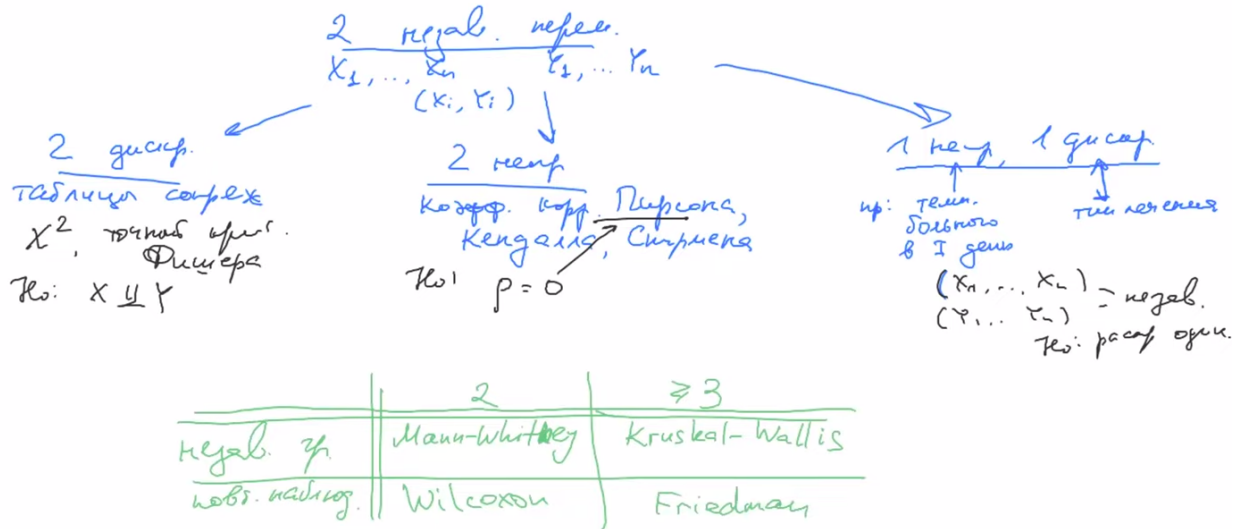 2 незав. перем.
X₁, ..., Xₙ Y₁, ... Yₙ
(Xᵢ, Yᵢ)
2 дискр.
таблицы сопряж
χ², точный крит.
Фишера
H₀: X ⫫ Y
2 непр
коэфф. корр. Пирсона,
Кендалла, Спирмена
H₀: ρ = 0
1 непр, 1 дискр
пр: темп. больного в I день
тип лечения
(X₁, ... Xₙ)
(Y₁ ... Yₙ) - незав.
H₀: распр один.
2 ≥3
незав. гр. Mann-Whitney Kruskal-Wallis
повт. наблюд. Wilcoxon Friedman